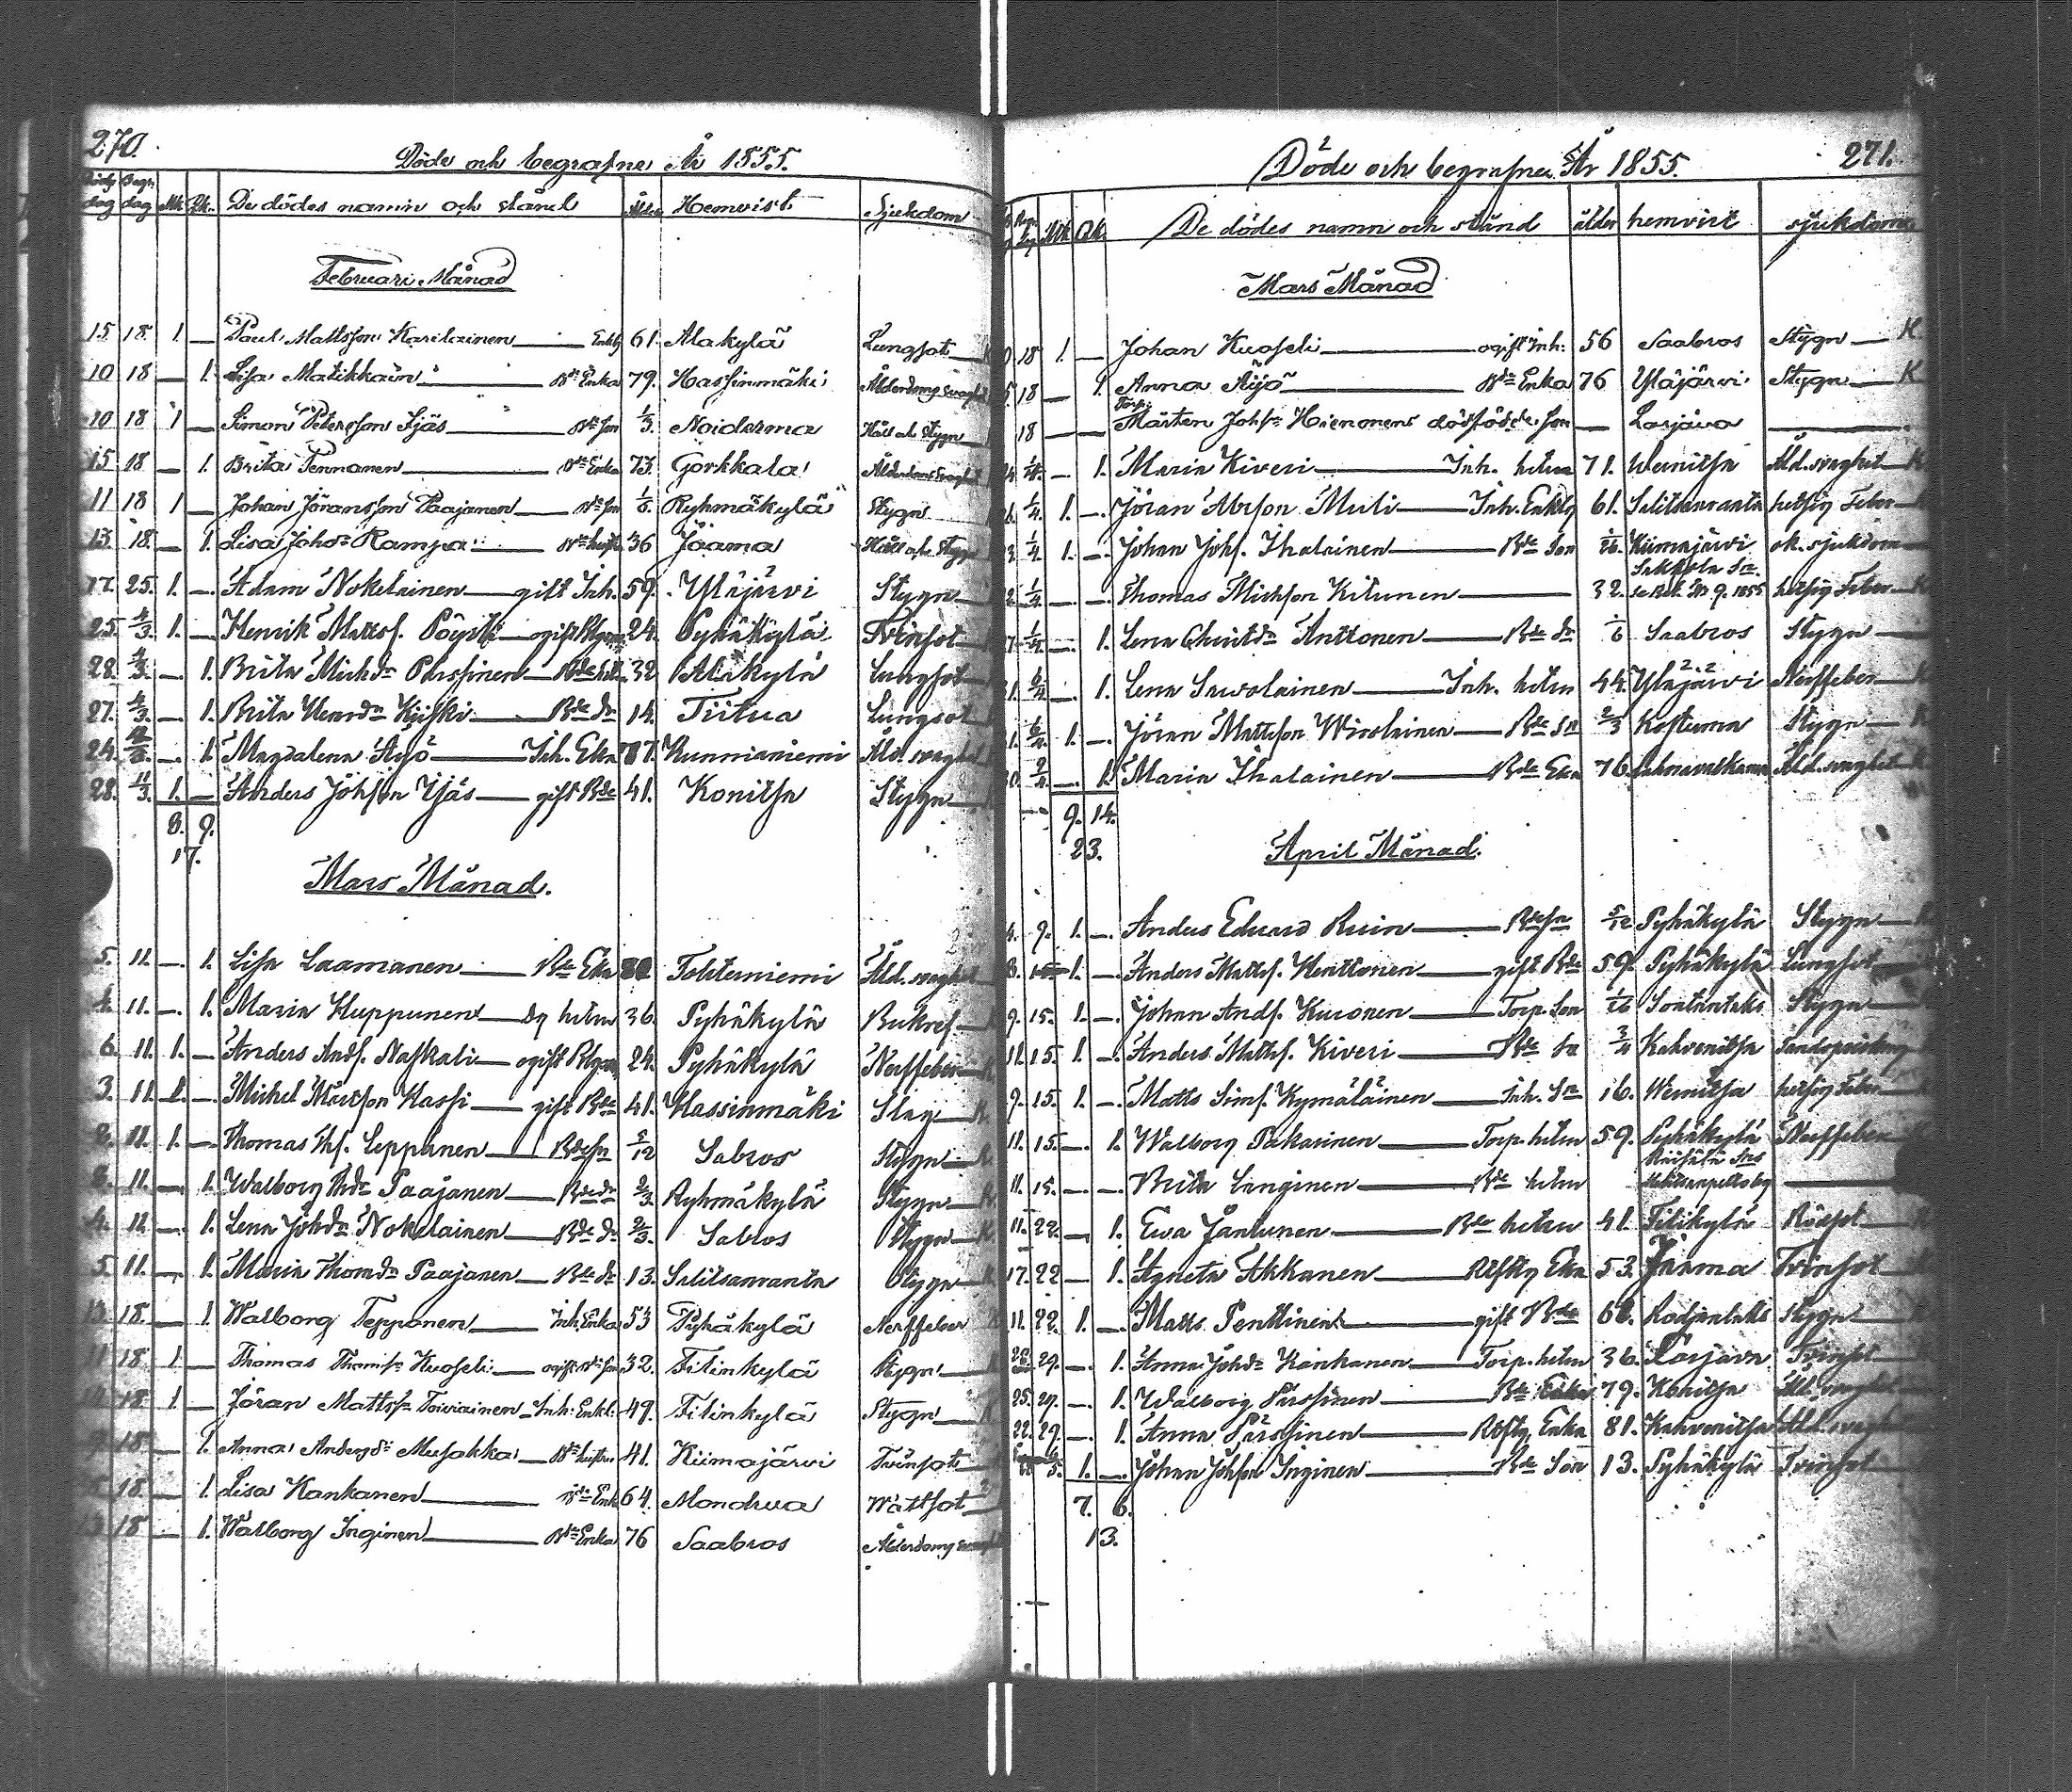 270.
Döde och begrafne År 1855.
Döds dag Begr. dag Mk. Qk. De dödes namn och stånd Ålder Hemvist Sjukdom
Februari Månad
15 18 1 — Paul Mattsson Karilainen — Enkl. 61. Alakylä Lungsot
10 18 — 1. Lisa Matikkain — Bde Enka 79. Hassinmäki Ålderdoms svaghet
10 18 1 — Simon Petersson Ijäs — Bde Son 1/3. Noiderma Håll ok Stygn
15 18 — 1. Brita Tennanen — Bde Enka 73. Gorkkala Ålderdoms svaghet
11 18 1 — Johan Jöransson Paajanen — Bde Son Ryhmäkylä Stygn
13. 18. — 1. Lisa Johsdr Rampa — Bde hustru 36 Jaama Håll ok Stygn
17. 25. 1. — Adam Nokelainen — gift Inh. 59. Yläjärvi Stygn
25. 4/3. 1. — Henrik Mattss. Pöysti — ogift 24. Pyhäkylä Tvinsot
28. 4/3. — 1. Brita Michdr Pärssinen — Bde hstru 32 Alakylä Lungsot
27. 4/3. — 1. Brita Hindr Kiiski — Bde dr 14. Tiitua Lungsot
24. — 1. Magdalena Äijö — Inh. Eka Kunnianiemi Åld. svaghet
28. 11/3. 1. — Anders Johsson Ijäs — gift Bde 41. Konitsa Stygn
8. 9.
17.
Mars Månad.
5. 11. — 1. Lisa Laamanen — Bde Eka Tohtuniemi Åld. svaghet
4. 11. — 1. Maria Huppunen — Dg hstru 36. Pyhäkylä Bukref.
6. 11. 1. — Anders Ands. Naskali — ogift 24. Pyhäkylä Nerffeber
3. 11. 1. — Michel Mårtson Hassi — gift Bde 41. Hassinmäki Slag
8. 11. 1. — Thomas Ths. Leppänen — Bdesn 5/12 Sabros Stygn
6. 11. — 1. Walborg Paajanen — Bdedr 2/3 Ryhmäkylä Stygn
4. 11. — 1. Lena Johdr Nokelainen — Bde dr 2/3. Sabros Stygn
5. 11. — 1. Maria Thomdr Paajanen — Bde dr 13. Selitsanranta Stygn
13. 18. — 1 Walborg Tepponen — Inh. Enka 53 Pyhäkylä Nerffeber
11 18. 1 — Thomas Thomss. Kuoseli — ogift 32. Titinkylä Stygn
14. 18. 1 — Jöran Mattss. Toiviainen — Inh. Enkl. 49. Titinkylä Stygn
18. — 1. Anna Andersdr Musakka — Bde hustru 41. Kiimajärvi Tvinsot
18. — 1. Lisa Kankanen — Bde Enka 64. Mondrua Wattsot
13 18 — 1. Walborg Inginen — Bde Enka 76 Saabros Ålderdoms svaghet
271.
Döde och begrafne År 1855.
Mk Qk. De dödes namn och stånd ålder hemvist sjukdom
Mars Månad
18 1. — Johan Kuoseli — ogift Inh. 56 Saabros Stygn — K.
18 — 1. Anna Äijö — Bde Enka 76 Yläjärvi Stygn — K
Torp.
18 — — Mårten Johss. Hienonens dödfödde son — Lasjava —
1/4. — 1. Maria Kiveri — Inh. hstru 71. Wernitsa Åld. svaghet — K
1/4. 1. — Jöran Abrson Muli — Inh. Enkling 61. Selitsanranta hetsig Feber
1/4 1. — Johan Johs. Ihalainen — Bde Son 1/26. Kiimajärvi ok. sjukdom
Sakkola Sn.
1/4. — — Thomas Michson Kitunen — 32. se Bil. No 9. 1855 hetsig Feber
1/4. — 1. Lena Anttonen — Bde dr 1/6 Saabros Stygn
6/4 — 1. Lena Sawolainen — Inh. hstru 44. Yläjärvi Nerffeber
6/4. 1. — Jöran Mattsson Wirolainen — Bde Sn 2/3 Kostuma Stygn
9/4. — 1. Maria Ihalainen — Bde Eka 76. Åld. svaghet
9. 14.
23.
April Månad.
4. 9. 1. — Anders Eduard Ruin — Bdesn 5/12 Pyhäkylä Stygn
8. 1. — Anders Mattss. Henttonen — gift Bde 59. Pyhäkylä Lungsot
9. 15. 1. — Johan Ands. Kuronen — Torp. Son 1/26 Stygn
11. 15. 1. — Anders Mattss. Kiveri — Bde Sn 3/4 Kahvenitsa
9. 15. 1. — Matts Sims. Kymäläinen — Inh. Sn 16. Wernitsa hetsig Feber
11. 15. — 1. Walborg Pakarinen — Torp. hstru 59. Pyhäkylä Nerffeber
Räisälä Sns
11. 15. — — Brita Langinen — Bde hstru —
11. 22. — 1. Ewa Jantunen — Bde hstru 41. Titikylä Rödsot
17. 22 — 1. Agneta Akkanen — Eka 53. Jaama Tvinsot
11. 22. 1. — Matts Penttinen — gift Bde 60. Stygn
29. — 1. Anna Johdr Kankanen — Torp. hstru 36. Lasjava Tvinsot
25. 29. — 1. Walborg Pärssinen — Bde Enka 79. Konitsa Åld. svaghet
22. 29. — 1. Anna Pärssinen — Enka 81. Kahvenitsa Åld. svaghet
1. — Johan Johsson Inginen — Bde Son 13. Pyhäkylä Tvinsot
7. 6.
13.